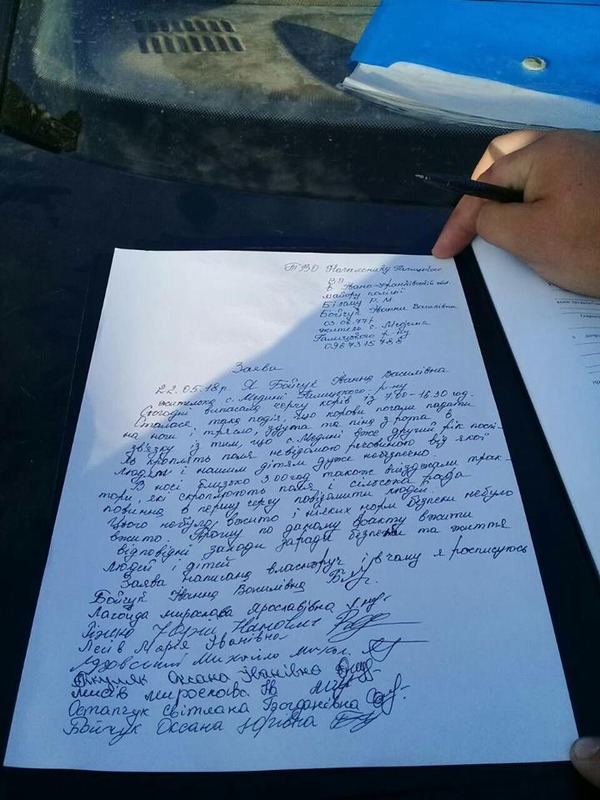 ТВО Начальнику Галицького
ВП
в Івано-Франківській обл.
майору поліції
Білому Р. М
Бойчук Жанни Василівни
03.06.77р
житель с. Мединя
Галицького р-ну
0967315788
Заява
22.05.18р. Я Бойчук Жанна Василівна
жителька с. Медині Галицького р-ну
Сьогодні випасала чергу корів із 7.00-16.30 год.
Сталася така подія, що корови почали падати
на ноги і трясло, здута та піна з рота в
зв'язку із тим, що с. Медині вже другий рік посі-
в кроплять поля невідомою речовиною від якої
людям і нашим дітям дуже небезпечно.
В носі близько 3.00 год також виїзджали трак-
тори, які скроплюють поля і сільська рада
повинна в першу чергу повідомити людей
Цього небуло вжито і ніяких норм безпеки небуло
вжито. Прошу по даному факту вжити
відповідні заходи заради безпеки та життя
людей і дітей
Заява написана власноруч і в чому я розписуюсь
Бойчук Жанна Василівна
Лагойда мирослава Ярославівна
Іванович
Лесів Марія Іванівна
Михайло
Оксана Іванівна
Лисів мирослава
Остапчук Світлана Богданівна
Бойчук Оксана Юріївна